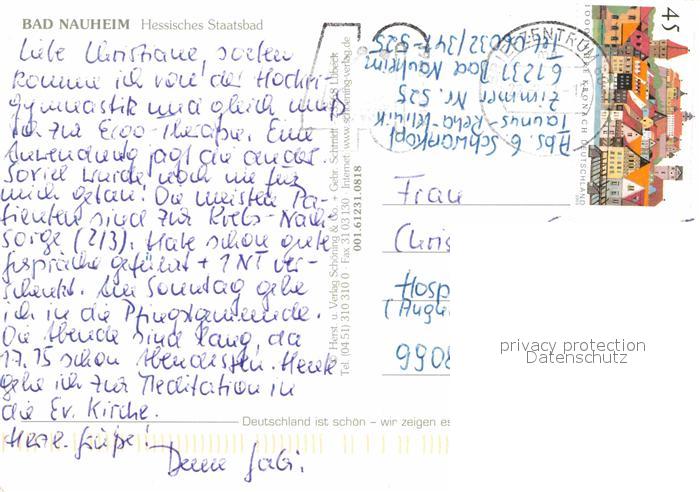 BAD NAUHEIM Hessisches Staatsbad
Liebe Christiane, soeben
komme ich von der Hocker-
gymnastik und gleich muß
ich zur Ergo-Therapie. Eine
Anwendung jagt die andere.
Soviel wurde noch nie für
mich getan. Die meisten Pa-
tienten sind zur Krebs-Nach
sorge (2/3). Habe schon gute
Gespräche geführt + 1 NT ver-
schenkt. Am Sonntag gehe
ich in die Pfingstgemeinde.
Die Abende sind lang, da
17.15 schon Abendessen. Heute
gehe ich zur Meditation in
die Ev. Kirche.
Herzl. Grüße!
Deine Gabi.
© Herst. u. Verlag Schöning & Co. + Gebr. Schmidt Lübeck
Tel. (04 51) 310 310 0 · Fax 31 03 130 Internet: www.schoening-verlag.de
001.61231.0818
Abs. G. Schwarzkopf
Taunus-Reha-Klinik
Zimmer Nr. 525
61231 Bad Nauheim
Tel. 06032/341-525
45
KRONACH DEUTSCHLAND
Frau
Chris
Hosp
990
Deutschland ist schön – wir zeigen es
privacy protection
Datenschutz